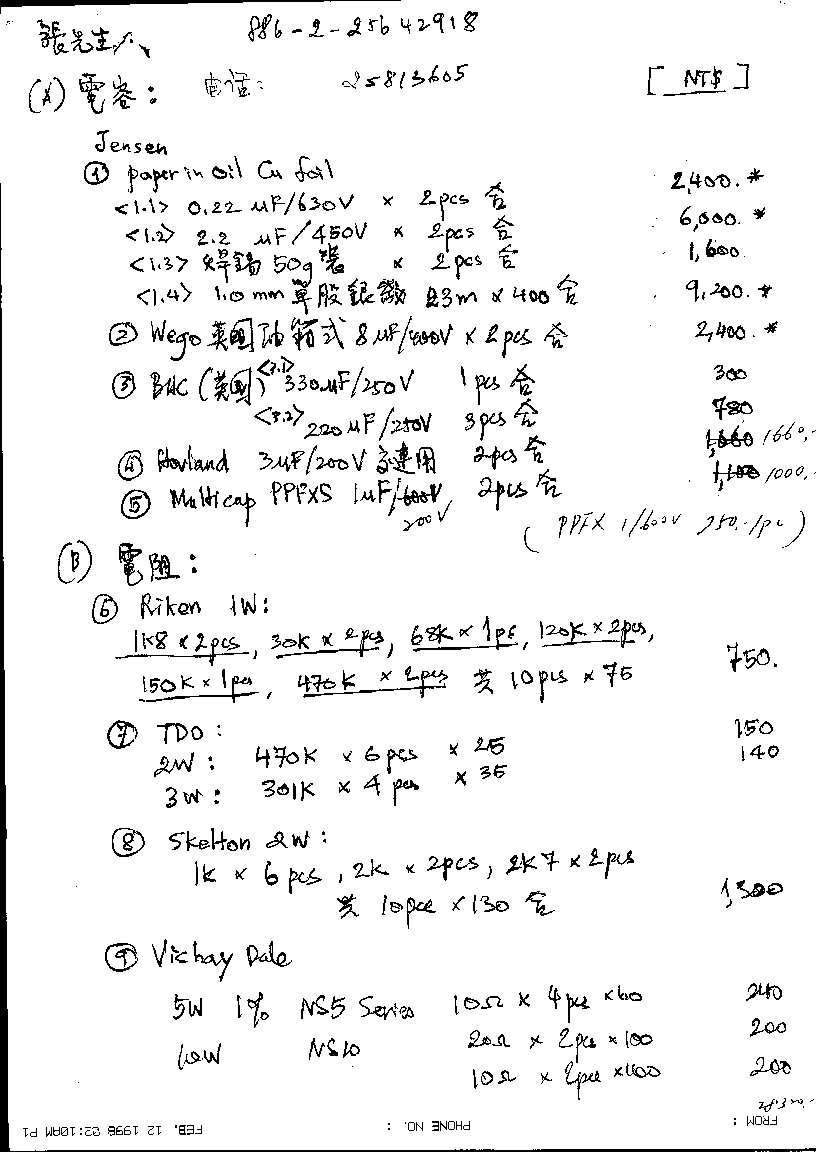 張先生
886-2-25642918
(A) 電容: 电话: 25813605 [NT$]
Jensen
① paper in oil Cu foil
<1.1> 0.22 μF/630V × 2pcs 合 2,400.*
<1.2> 2.2 μF/450V × 2pcs 合 6,000.*
<1.3> 焊錫 50g 裝 × 2pcs 合 1,600.
<1.4> 1.0mm 單股銀線 23m × 400 合 9,200.*
② Wego 英國油箱式 8μF/400V × 2pcs 合 2,400.*
③ BHC (英國) <3.1> 330μF/250V 1pcs 合 300
<3.2> 220μF/250V 3pcs 合 780
④ Hovland 3μF/200V 2pcs 合 1,660 1660,-
⑤ Multicap PPFXS 1μF/600V 2pcs 合 1,100 1000,-
200V
(PPFX 1/600V 750.-/pc)
(B) 電阻:
⑥ Riken 1W:
1K8 × 2pcs, 30K × 2pcs, 68K × 1pc, 120K × 2pcs,
150K × 1pcs, 470K × 2pcs 共 10pcs × 75 750.
⑦ TDO:
2W: 470K × 6pcs × 25 150
3W: 301K × 4pcs × 35 140
⑧ Skelton 2W:
1K × 6pcs, 2K × 2pcs, 2K7 × 2pcs
共 10pcs × 130 合 1,300
⑨ Vichay Dale
5W 1% NS5 Series 10Ω × 4pcs × 60 240
10W NS10 20Ω × 2pcs × 100 200
10Ω × 2pcs × 100 200
FROM : PHONE NO. : FEB. 12 1998 02:10AM P1